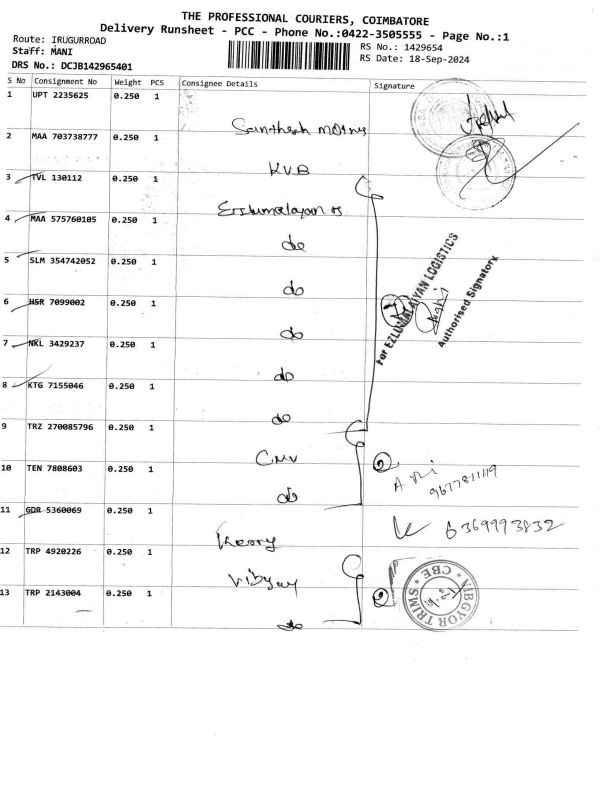 THE PROFESSIONAL COURIERS, COIMBATORE
Delivery Runsheet - PCC - Phone No.:0422-3505555 - Page No.:1
Route: IRUGURROAD
Staff: MANI
DRS No.: DCJB142965401
RS No.: 1429654
RS Date: 18-Sep-2024
S No Consignment No Weight PCS Consignee Details Signature
1 UPT 2235625 0.250 1
Santhosh motors
2 MAA 703738777 0.250 1
KVB
3 TVL 130112 0.250 1
4 MAA 575760105 0.250 1
do
5 SLM 354742052 0.250 1
do
6 HSR 7099002 0.250 1
do
7 NKL 3429237 0.250 1
do
8 KTG 7155046 0.250 1
do
For EZLUMALAIYAN LOGISTICS
Authorised Signatory
9 TRZ 270085796 0.250 1
10 TEN 7808603 0.250 1
do
9677811119
11 GDR 5360069 0.250 1
6369993832
12 TRP 4920226 0.250 1
Vibgyor
13 TRP 2143004 0.250 1
do
VIBGYOR TRIMS
CBE